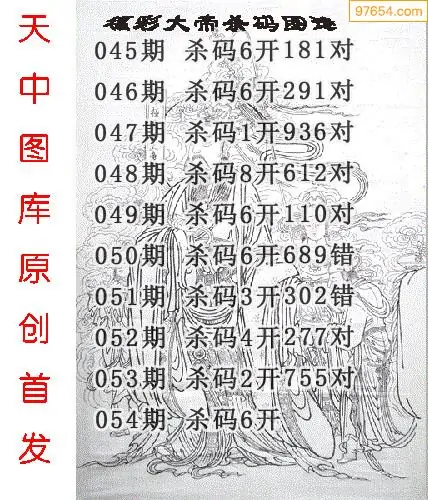 97654.com
福彩大帝杀码图迷
天中图库原创首发
045期 杀码6开181对
046期 杀码6开291对
047期 杀码1开936对
048期 杀码8开612对
049期 杀码6开110对
050期 杀码6开689错
051期 杀码3开302错
052期 杀码4开277对
053期 杀码2开755对
054期 杀码6开